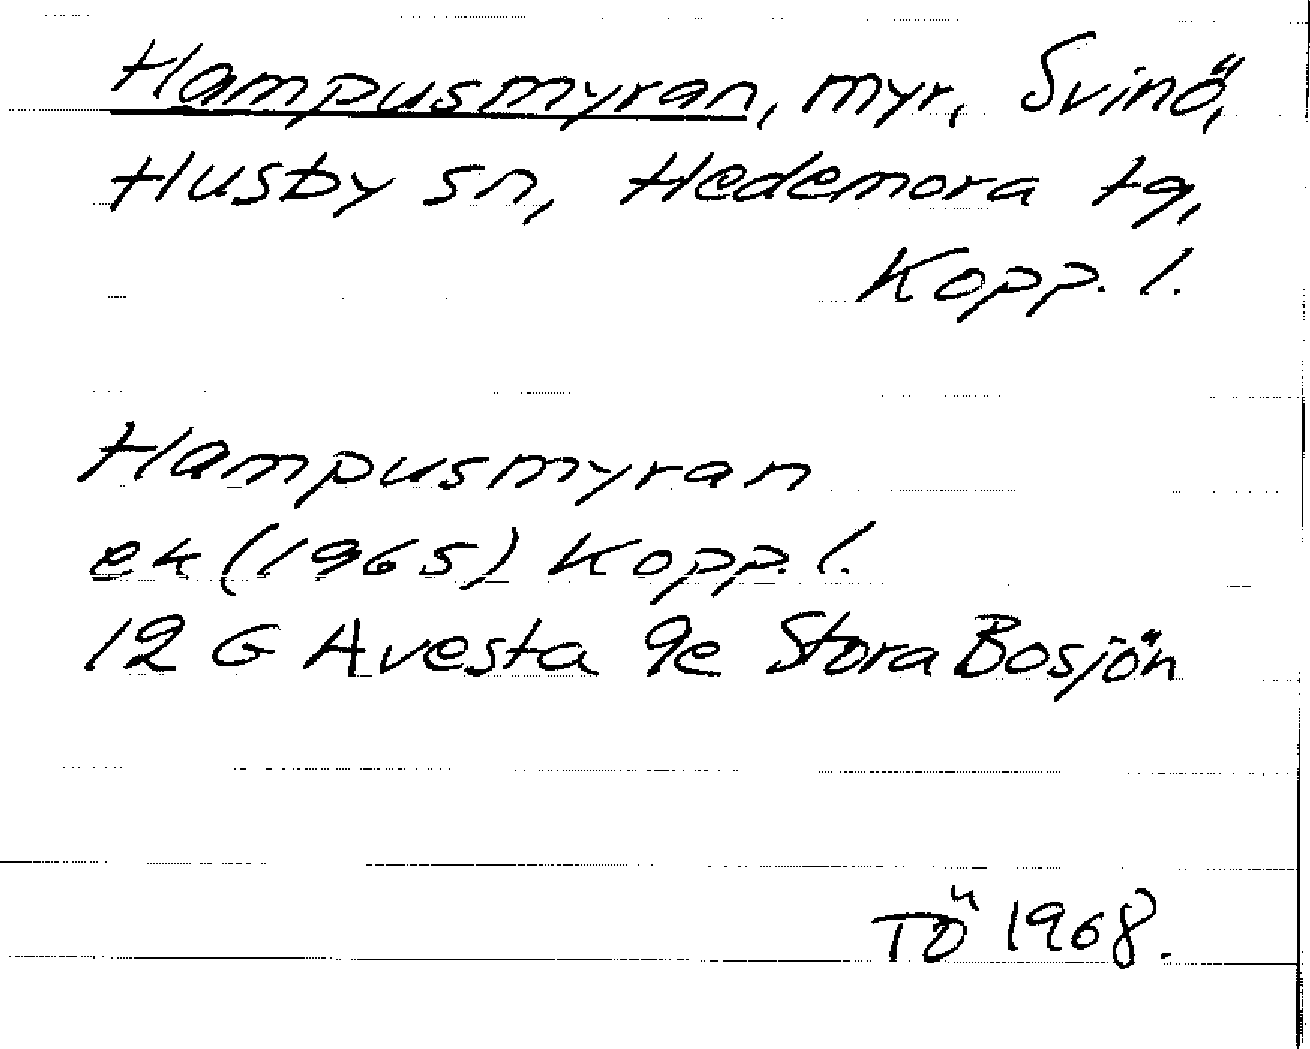 Hampusmyran, myr, Svinö,
Husby sn, Hedemora tg,
Kopp. l.
Hampusmyran
ek (1965) Kopp. l.
12 G Avesta 9e Stora Bosjön
TÖ 1968.